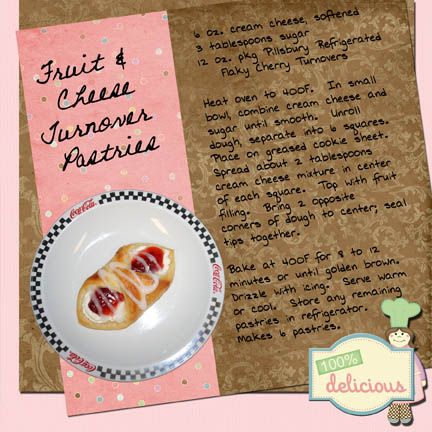 Fruit &
Cheese
Turnover
Pastries
6 oz. cream cheese, softened
3 tablespoons sugar
12 oz. pkg Pillsbury Refrigerated
Flaky Cherry Turnovers
Heat oven to 400F. In small
bowl, combine cream cheese and
sugar until smooth. Unroll
dough, separate into 6 squares.
Place on greased cookie sheet.
Spread about 2 tablespoons
cream cheese mixture in center
of each square. Top with fruit
filling. Bring 2 opposite
corners of dough to center; seal
tips together.
Bake at 400F for 8 to 12
minutes or until golden brown.
Drizzle with icing. Serve warm
or cool. Store any remaining
pastries in refrigerator.
Makes 6 pastries.
Coca-Cola
Coca-Cola
Coca-Cola
100%
delicious